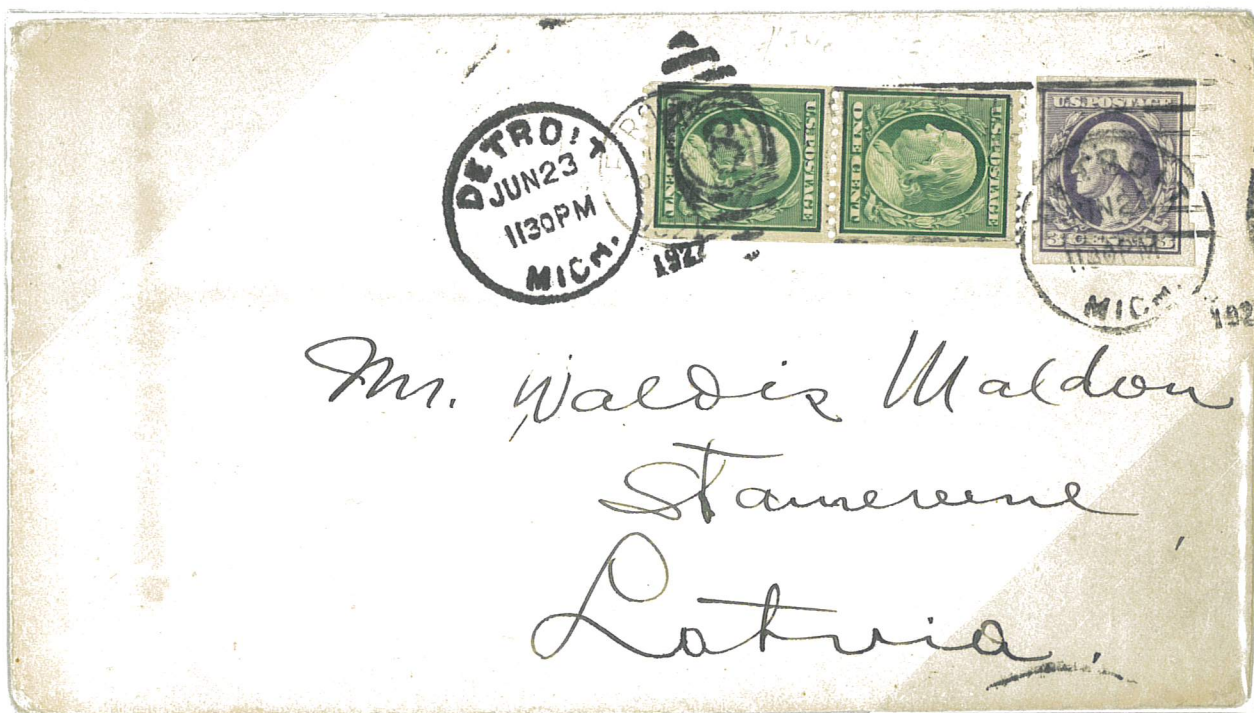 DETROIT
JUN 23
1130 PM
MICH.
U.S. POSTAGE
ONE CENT
U.S. POSTAGE
ONE CENT
U.S. POSTAGE
3 CENTS 3
1130 PM
MICH.
Mr. Waldis Maldon
Stamerene
Latvia.